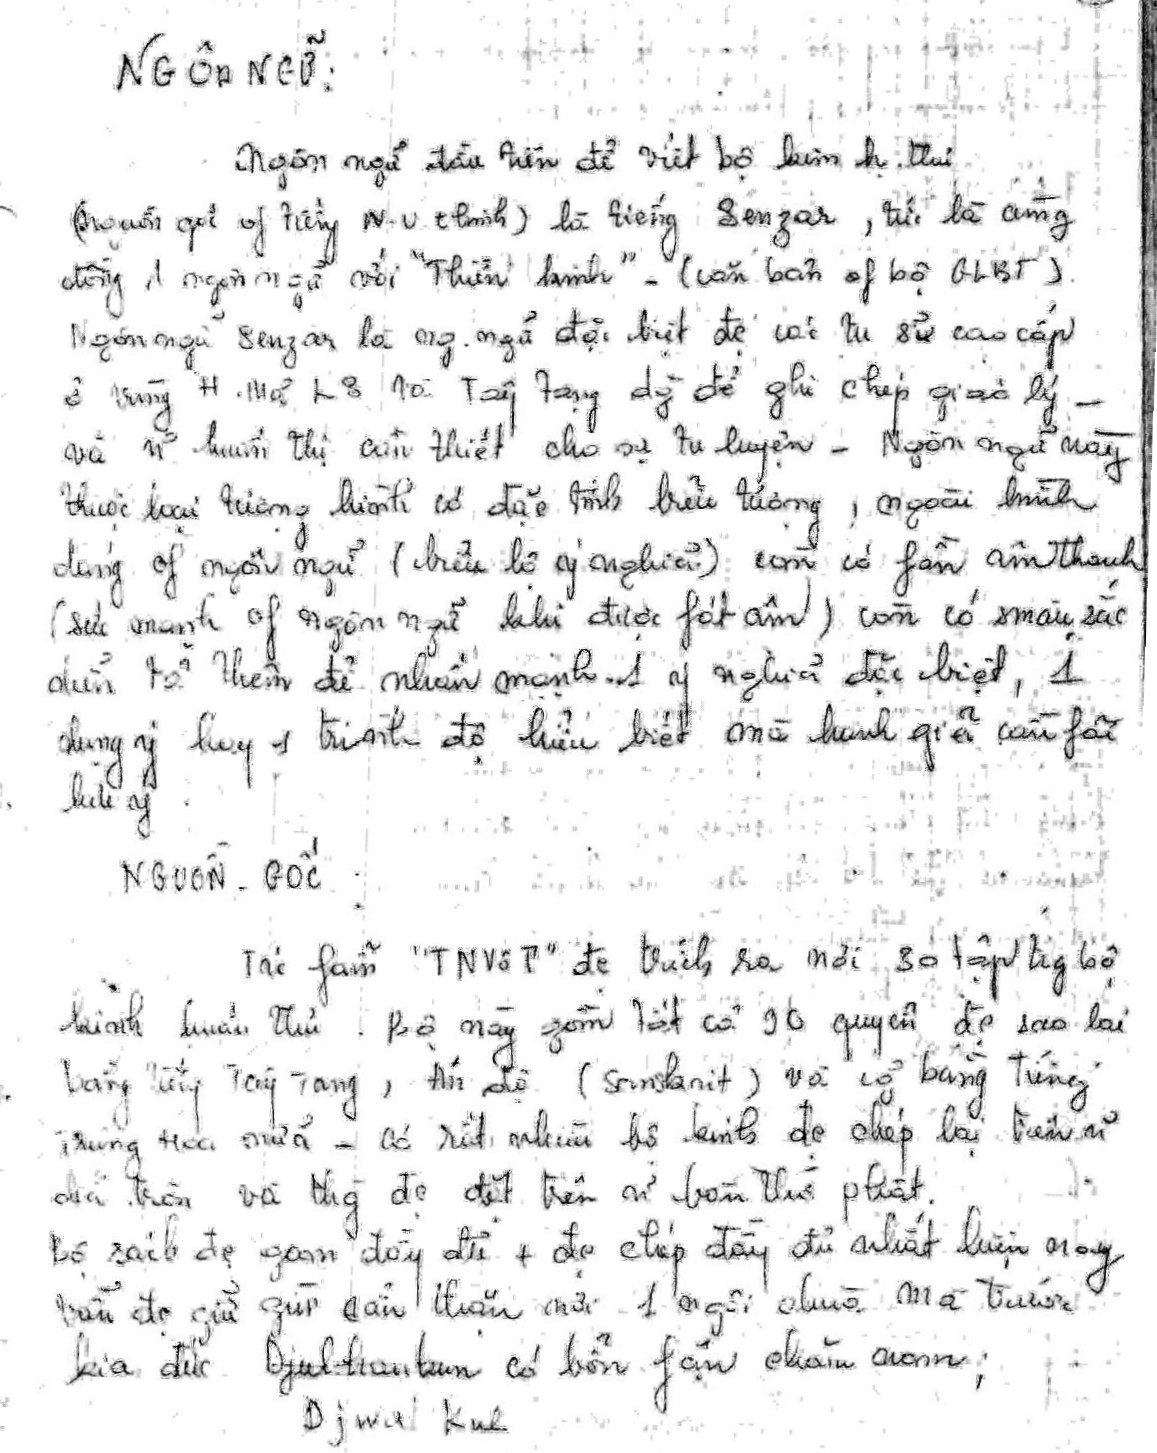 NGÔN NGỮ:
Ngôn ngữ đầu tiên để viết bộ kim h. thư
(nguồn gốc of tiếng N.V chính) là tiếng Senzar, tức là cùng
đồng 1 ngôn ngữ với "Thiền kinh" - (căn bản of bộ GLBT).
Ngôn ngữ Senzar là ng. ngữ đặc biệt đc các tu sĩ cao cấp
ở vùng H. Mã LS và Tây Tạng dg để ghi chép giáo lý -
và n~ huấn thị cần thiết cho sự tu luyện - Ngôn ngữ này
thuộc loại tượng hình có đặc tính biểu tượng, ngoài hình
dạng of ngôn ngữ (biểu lộ ý nghĩa) còn có fần âm thanh
(sức mạnh of ngôn ngữ khi được fát âm) còn có màu sắc
diễn tả thêm để nhấn mạnh 1 ý nghĩa đặc biệt, 1
dụng ý hay 1 trình độ hiểu biết mà hành giả cần fải
lưu ý.
NGUỒN - GỐC:
Tác fẩm "TNVôT" đc trích ra nơi 30 tập trg bộ
kinh huấn thư. Bộ này gồm tất cả 90 quyển đc sao lại
bằng tiếng Tây Tạng, Ấn độ (Sanskrit) và cả bằng tiếng
Trung Hoa nữa - có rất nhiều bộ kinh đc chép lại trên n~
dĩa tròn và thg đc đặt trên n~ bàn thờ phật.
Bộ sách đc gom đầy đủ + đc chép đầy đủ nhất hiện nay
vẫn đc giữ gìn cẩn thận nơi 1 ngôi chùa mà trước
kia đức có bổn fận chăm nom;
Djwal Kul